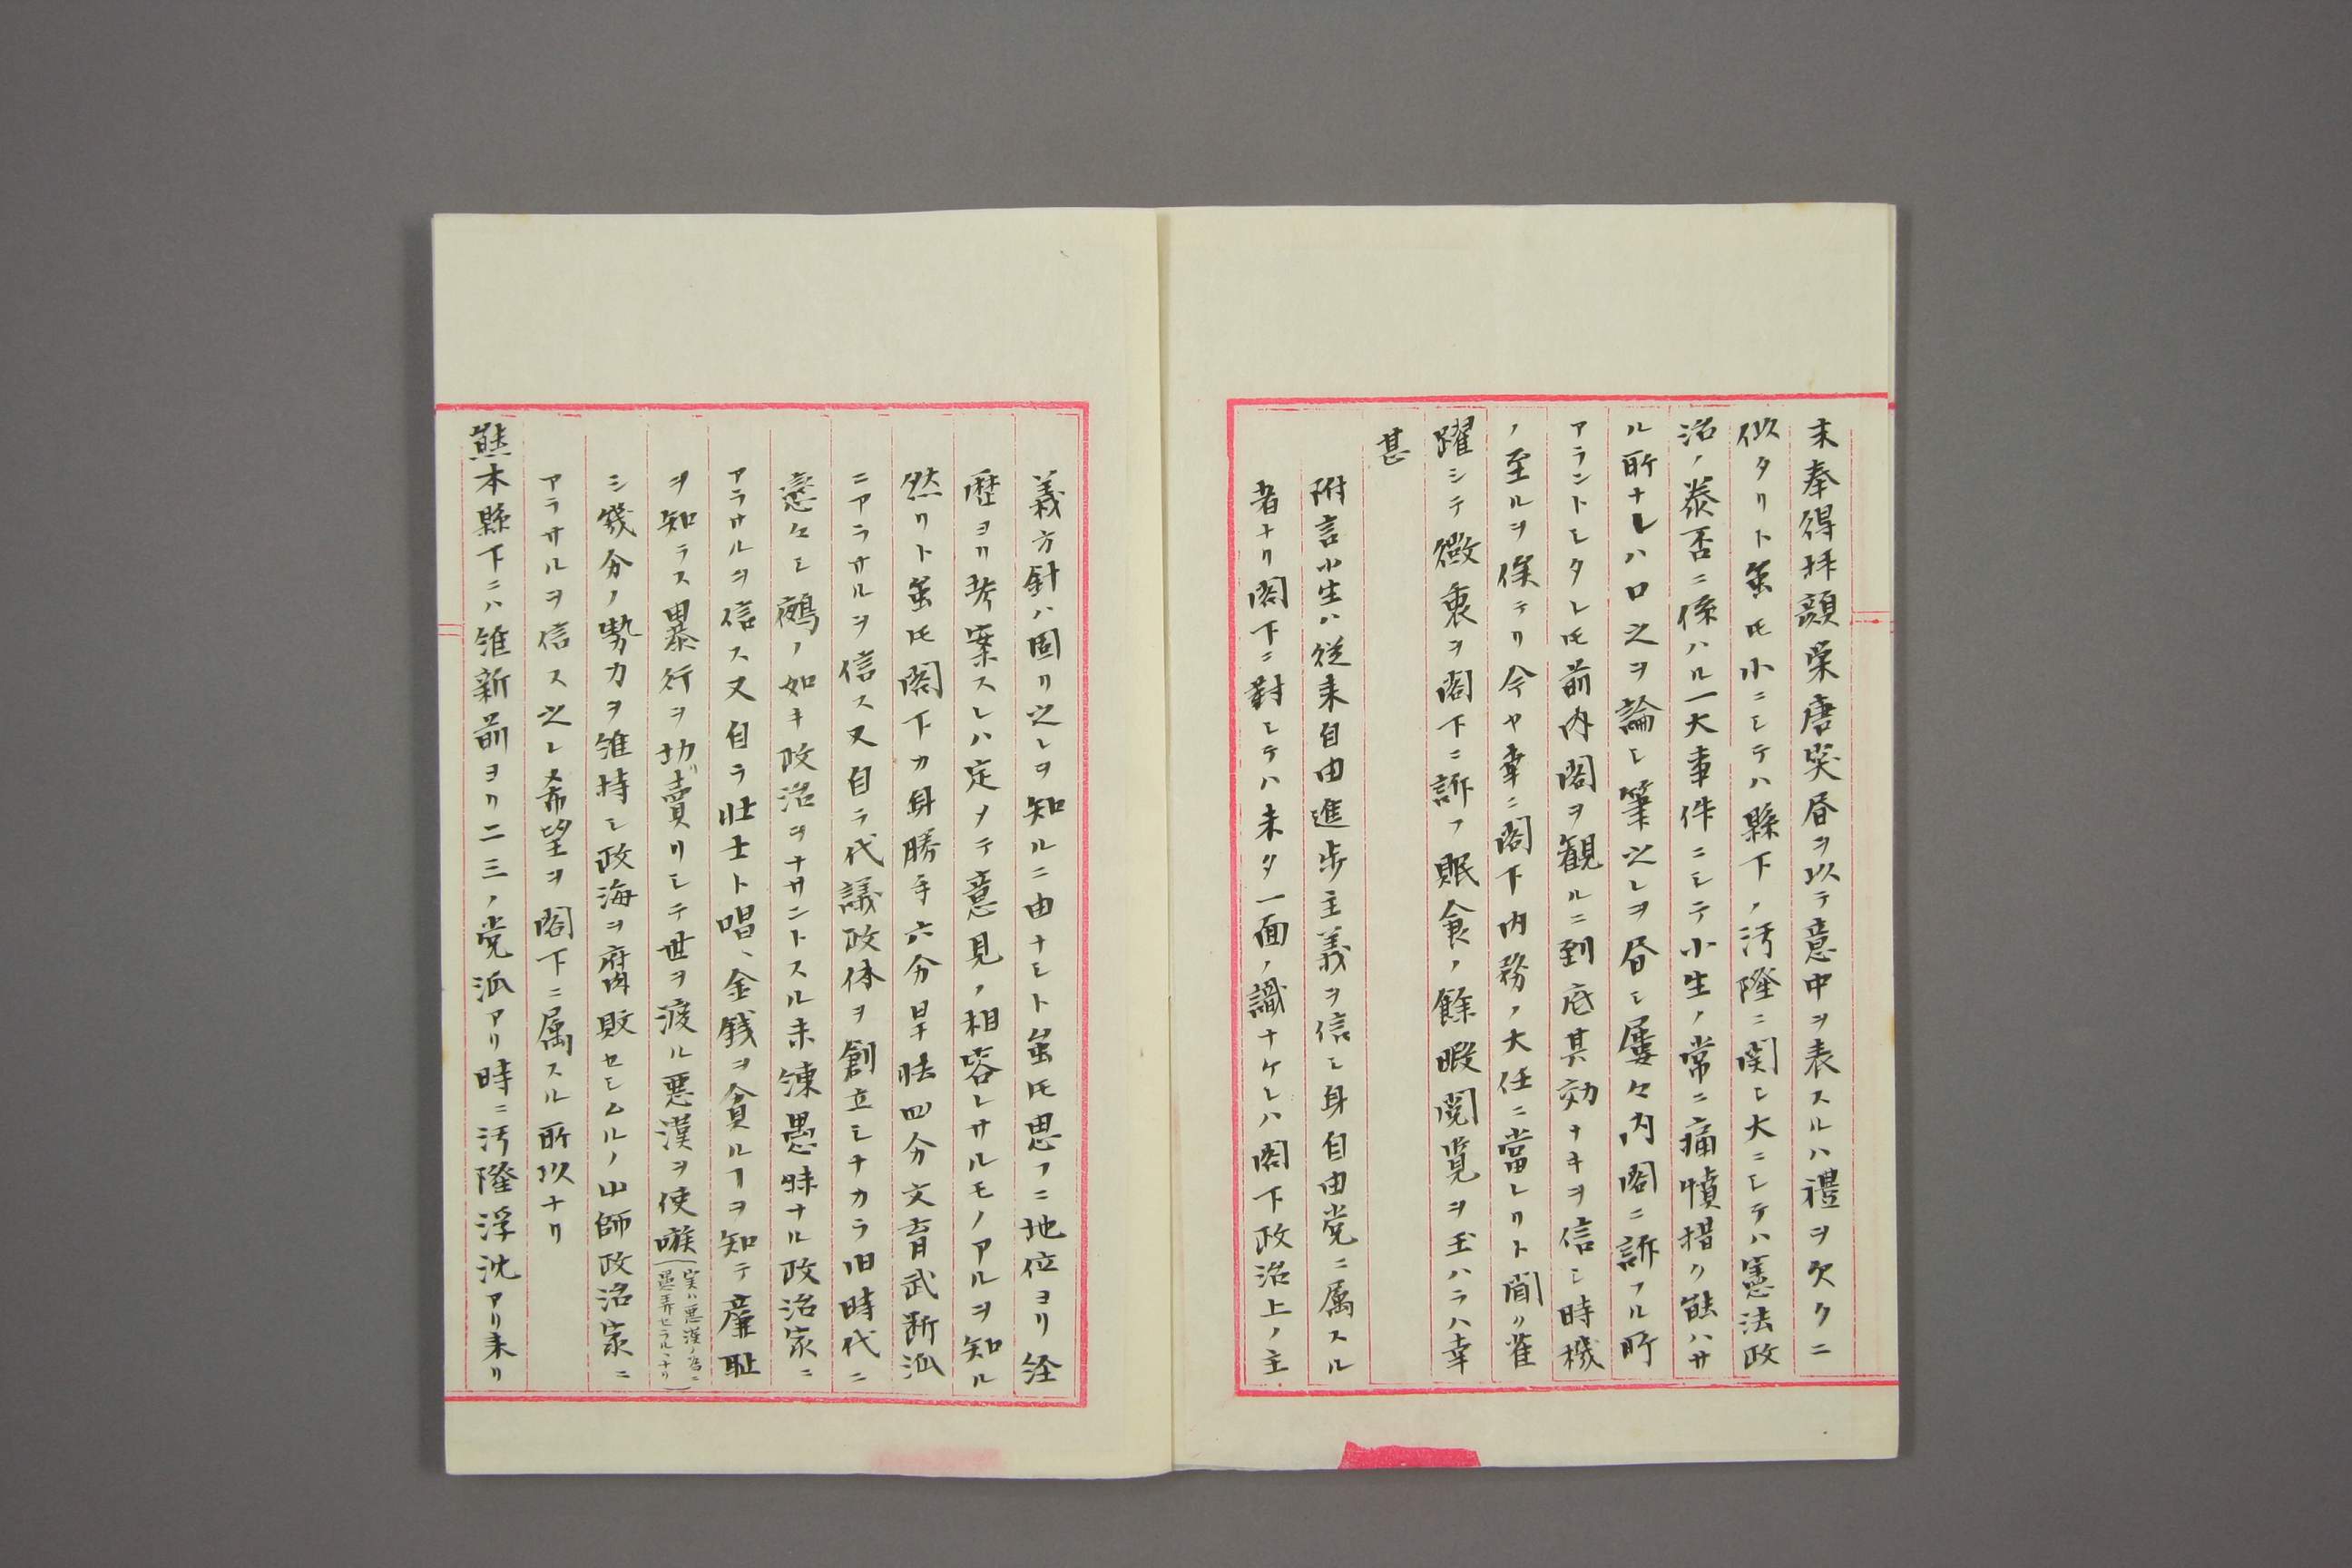 未奉得拝顔栄唐突昼ヲ以テ意中ヲ表スルハ禮ヲ欠クニ
似タリト虽𪜈小ニシテハ縣下ノ汚隆ニ関シ大ニシテハ憲法政
治ノ泰否ニ係ハル一大事件ニシテ小生ノ常ニ痛憤措ク能ハサ
ル所ナレハ口之ヲ論シ筆之レヲ昼シ屢々内閣ニ訴フル所
アラントシタレ𪜈前内閣ヲ観ルニ到底其効ナキヲ信シ時機
ノ至ルヲ俟テリ今ヤ幸ニ閣下内務ノ大任ニ當レリト聞ク雀
躍シテ微衷ヲ閣下ニ訴フ眠食ノ餘暇閲覧ヲ玉ハラハ幸
甚
附言小生ハ従来自由進歩主義ヲ信シ身自由党ニ属スル
者ナリ閣下ニ對シテハ未タ一面ノ識ナケレハ閣下政治上ノ主
義方針ハ固リ之レヲ知ルニ由ナシト虽𪜈思フニ地位ヨリ経
歴ヨリ考案スレハ定メテ意見ノ相容レサルモノアルヲ知ル
然リト虽𪜈閣下カ身勝手六分卑怯四分文盲武断派
ニアラサルヲ信ス又自ラ代議政体ヲ創立シナカラ旧時代ニ
恋々シ鵺ノ如キ政治ヲナサントスル未練愚昧ナル政治家ニ
アラサルヲ信ス又自ラ壮士ト唱ヘ金銭ヲ貪ルヿヲ知テ廉耻
ヲ知ラス暴行ヲ切リ賣リシテ世ヲ渡ル悪漢ヲ使嗾(実ハ悪漢ノ為ニ愚弄セラルヽナリ)
シ幾分ノ勢力ヲ維持シ政海ヲ腐敗セシムルノ山師政治家ニ
アラサルヲ信ス之レ希望ヲ閣下ニ属スル所以ナリ
熊本縣下ニハ維新前ヨリ二三ノ党派アリ時ニ汚隆浮沈アリ来リ